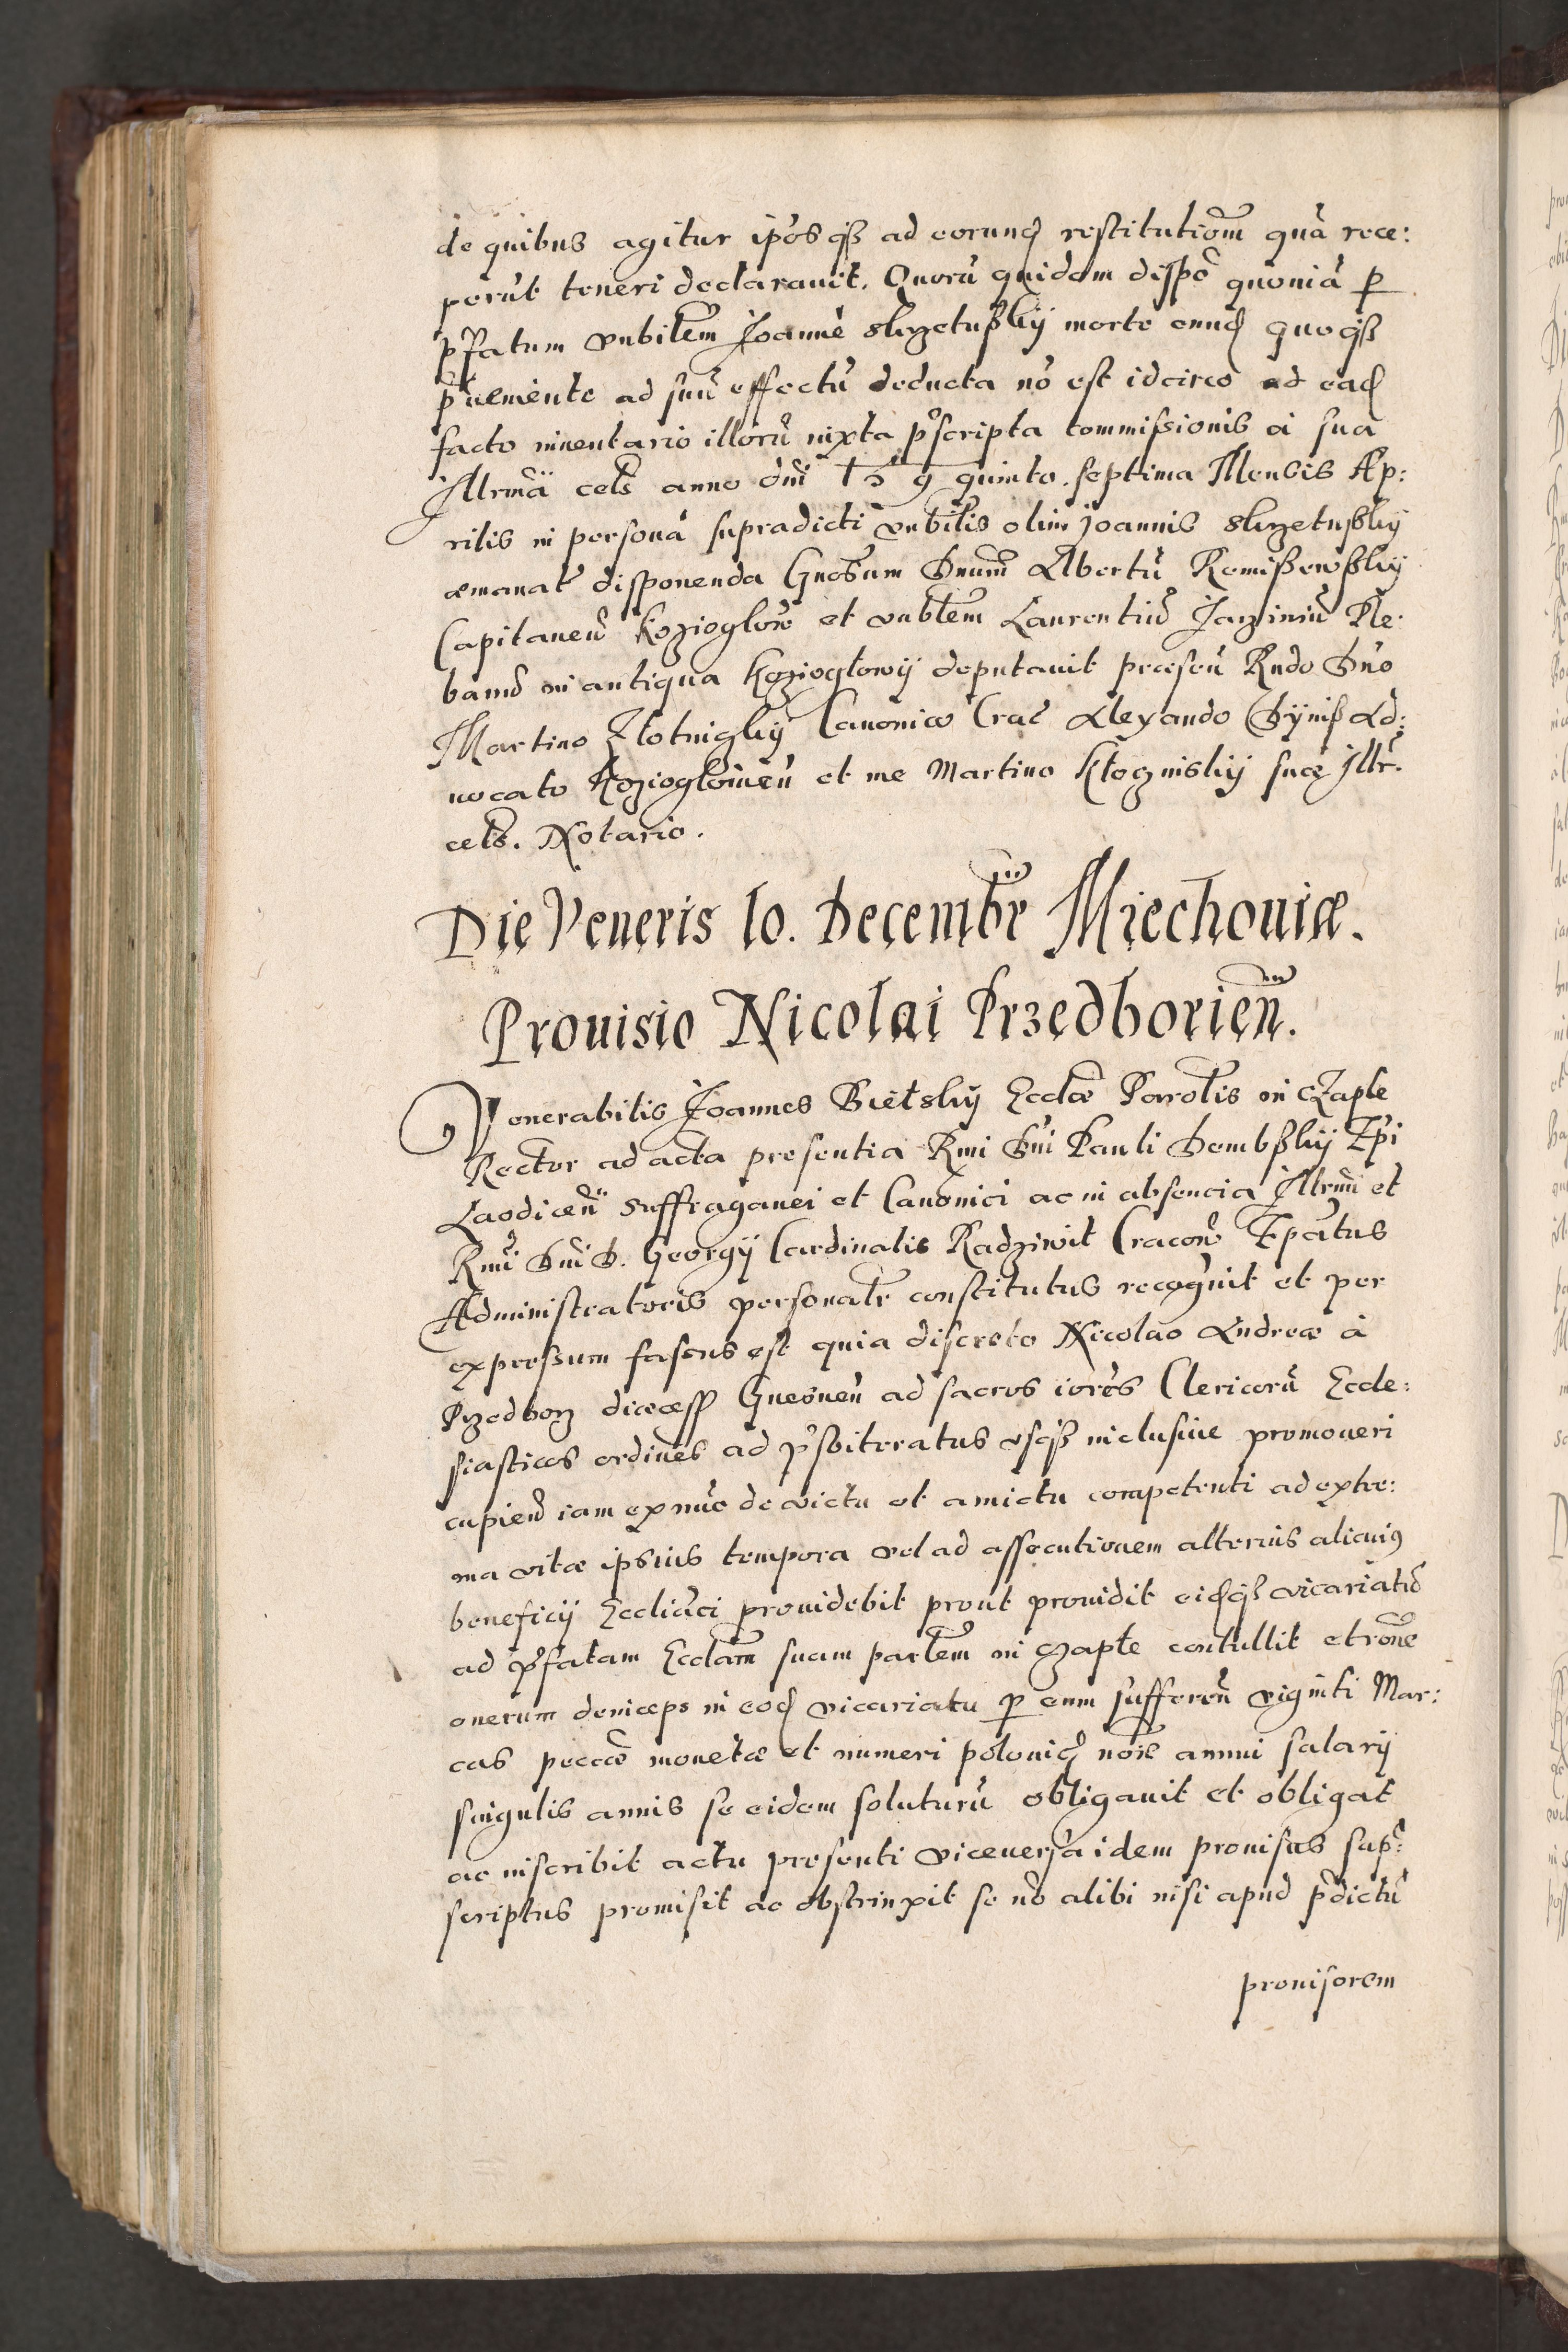 de quibus agitur ip̃os qȝ ad eorund restitutiom̃ quã rece:
perũt teneri declarauit. Quorũ quidem dispõ quoniã p
p̃fatum vnbilem̃ Joannẽ skrzetuskij morte eund quoqȝ
p̃ueniente ad suũ effectũ deducta nõ est idcirco ad ead
facto inuentario illorũ iuxta p̃scripta commissionis a sua
Illrmã cels anno dni quinto. septima Mensis Ap:
rilis in personã supradicti vnbilis olim Joannis skrzetuskij
emanat̃ disponenda Gnosum Dnum̃ Albertũ Remiszewskij
Capitaneũ Kozieglow̃ et vnblem Laurentiũ Ple:
banũ in antiqua Kozieglowij deputauit praesen̄ Rndo Dno
Martino Zlotnigkij Canonico Crac̃ Alexandro Ad:
uocato Kozieglouieñ et me Martino Kłoczniskij suae Illr̃.
cels. Notario.
Die Veneris 10. Decembr̃ Miechouiae.
Prouisio Nicolai Przedborien̄.
Venerabilis Joannes Bielskij Eccliae Parolis in Czaple
Rector ad acta presentia Rmi Dni Pauli Dembskij Epi
Laodicen̄ suffraganei et Canonici ac in absencia Illrmi et
Rmi Dni D. Georgij Cardinalis Radziwil Cracoñ Epatus
Administratoris personalr̃ constitutus recognuit et per
expressum fassus est quia discreto Nicolao Andreae à
Przedborz dioeces Gnesnen̄ ad sacros iores Clericorũ Eccle:
siasticos ordines ad p̃sbiteratus vsqȝ inclusiue promoueri
cupien̄ iam ex nũc de victu et amictu competenti ad extre:
ma vitae ipsius tempora vel ad assecutionem alterius alicui9
beneficij Eccliãci prouidebit prout prouidit eidqȝ vicariatũ
ad p̃fatam Eccliam̃ suam parlem̃ in Czaple contullit et rone
onerum deinceps in eod vicariatu p eum sufferen̄ viginti Mar:
cas peccae monetae et numeri polonic noie annui salarij
singulis annis se eidem soluturũ obligauit et obligat
ac inscribit actu presenti viceuersa idem prouisus sup̃:
scriptus promisit ac obstrinxit se nõ alibi nisi apud p̃dictũ
prouisorem